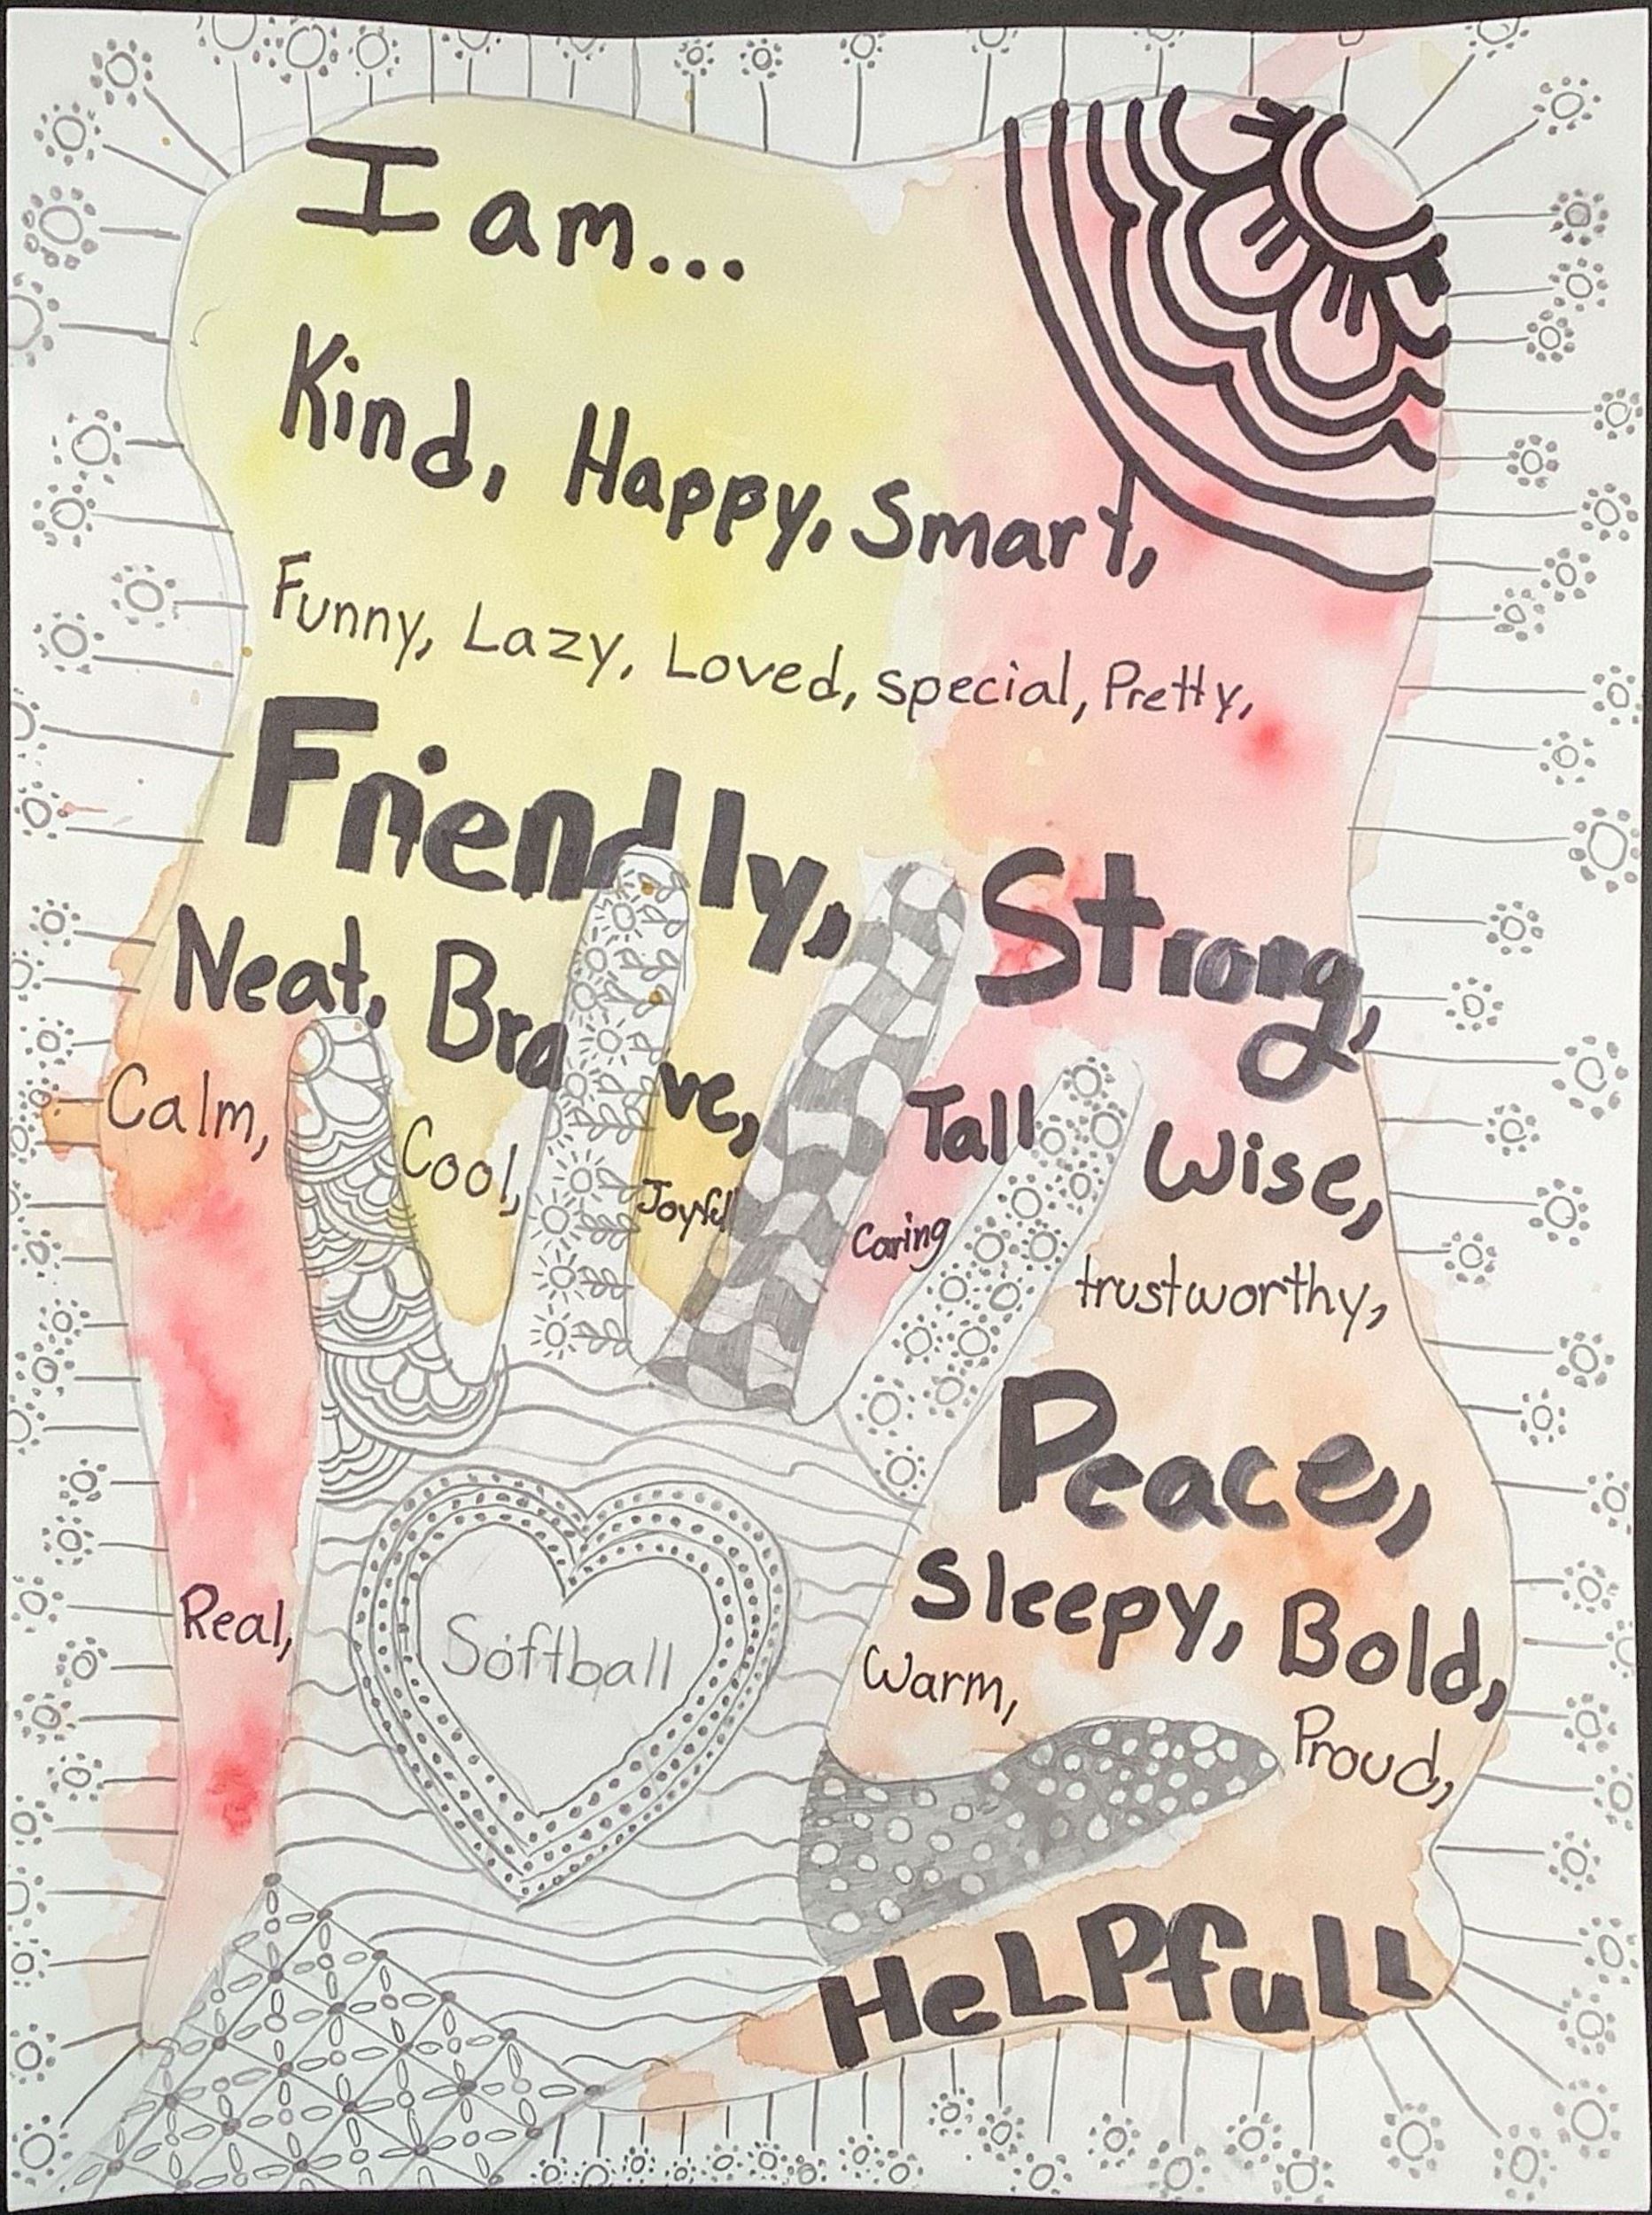 I am...
Kind, Happy, Smart,
Funny, Lazy, Loved, special, Pretty,
Friendly, Strong,
Neat, Brave, Tall Wise,
Calm, Cool, Joyful Caring trustworthy,
Peace,
Sleepy, Bold,
Real, Softball Warm, Proud,
HeLPfuLL